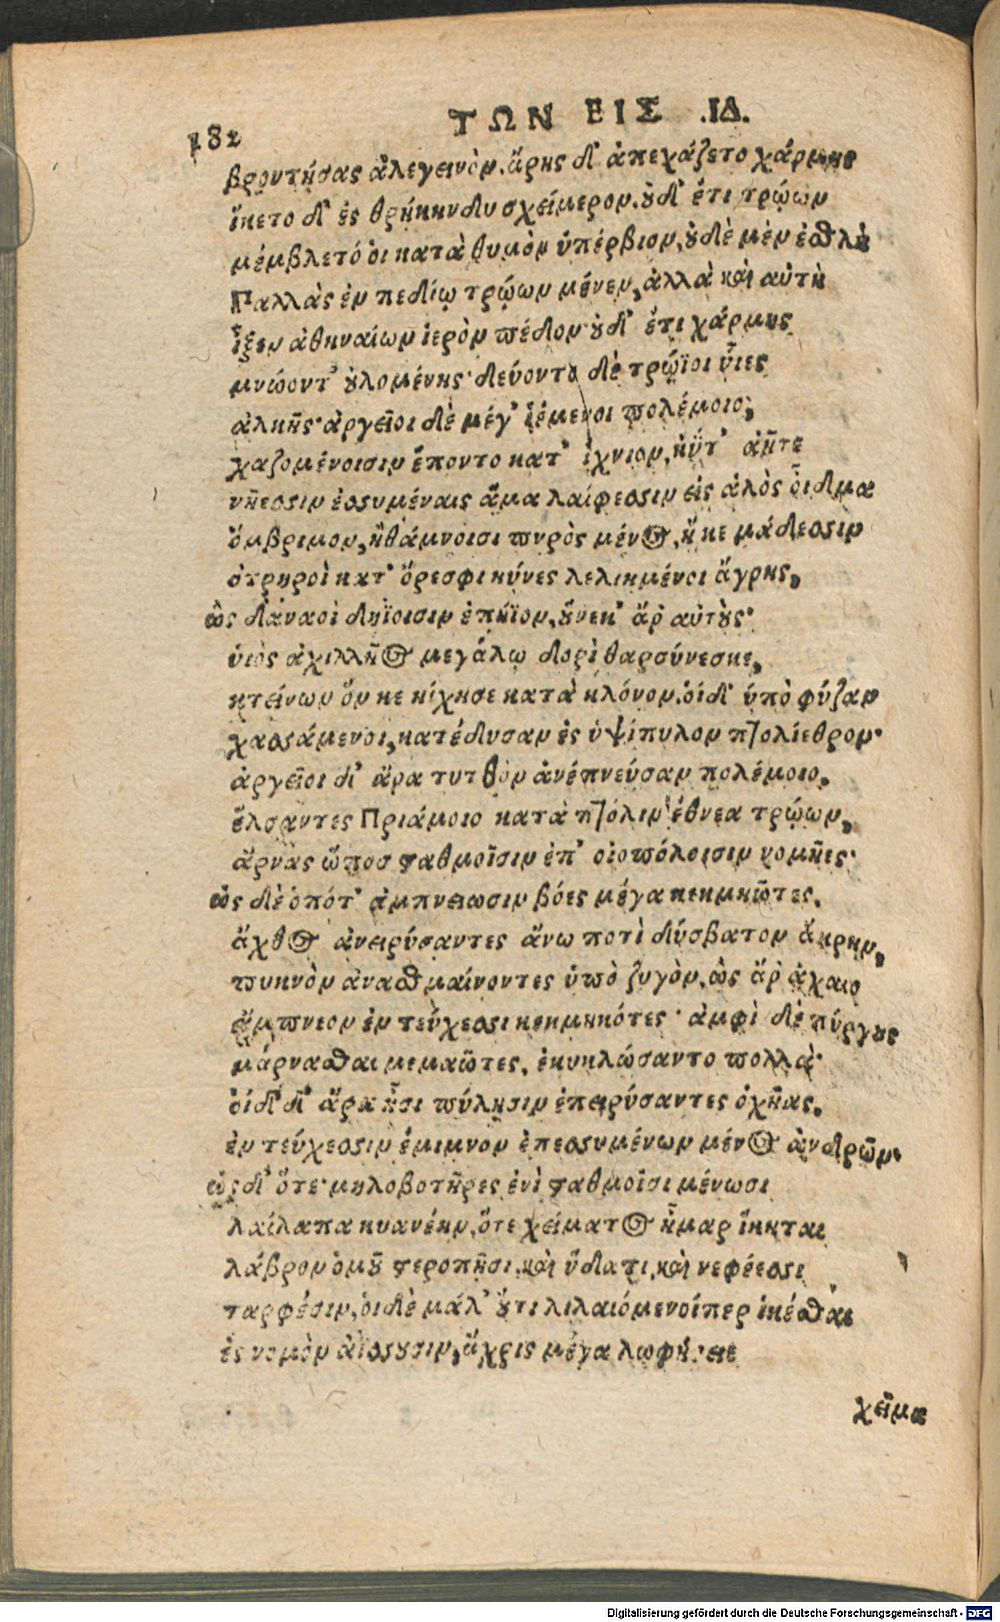 182
ΤΩΝ ΕΙΣ .ΙΔ.
βροντήσας ἀλεγεινὸν. ἄρης δ' ἀπεχάζετο χάρμης
ἵκετο δ' ἐς θρῄκην δυσχείμερον. οὐδ' ἔτι τρώων
μέμβλετό οἱ κατὰ θυμὸν ὑπέρβιον, οὐδὲ μὲν ἐσθλὴ
Παλλὰς ἐν πεδίῳ τρώων μένεν, ἀλλὰ καὶ αὐτὴ
ἷξεν ἀθηναίων ἱερὸν πέδον· οὐδ' ἔτι χάρμης
μνώοντ' οὐλομένης· δεύοντο δὲ τρώϊοι υἷες
ἀλκῆς· ἀργεῖοι δὲ μέγ' ἱέμενοι πολέμοιο,
χαζομένοισιν ἕποντο κατ' ἴχνιον, ἠΰτ' ἀῆτε
νήεσσιν ἐσσυμέναις ἅμα λαίφεσσιν εἰς ἁλὸς οἶδμα
ὄμβριμον, ἢ θάμνοισι πυρὸς μένος, ἤ κε μάδεσσιν
ὀτρηροὶ κατ' ὄρεσφι κύνες λελιημένοι ἄγρης,
ὣς δαναοὶ δηΐοισιν ἐπήϊον, οὕνεκ' ἄρ' αὐτοὺς·
υἱὸς ἀχιλλῆος μεγάλῳ δορὶ θαρσύνεσκε,
κτείνων ὅν κε κίχησε κατὰ κλόνον. οἱ δ' ὑπὸ φύζαν
χασσάμενοι, κατέδυσαν ἐς ὑψίπυλον πτολίεθρον·
ἀργεῖοι δ' ἄρα τυτθὸν ἀνέπνευσαν πολέμοιο,
ἔλσαντες Πριάμοιο κατὰ πτόλιν ἔθνεα τρώων,
ἄρνας ὥποσ σταθμοῖσιν ἐπ' οἰοπόλοισιν νομῆες·
ὡς δὲ ὁπότ' ἀμπνείωσιν βόες μέγα κεκμηῶτες.
ἄχθος ἀνειρύσαντες ἄνω ποτὶ δύσβατον ἄκρην,
πυκνὸν ἀνασθμαίνοντες ὑπὸ ζυγὸν, ὣς ἄρ' ἀχαιοὶ
ἄμπνεον ἐν τεύχεσσι κεκμηκότες· ἀμφὶ δὲ πύργους
μάρνασθαι μεμαῶτες, ἐκυκλώσαντο πολλὰ·
οἱ δ' δ' ἄρα ᾗσι πύλῃσιν ἐπειρύσαντες ὀχῆας.
ἐν τεύχεσσιν ἔμιμνον ἐπεσσυμένων μένος ἀνδρῶν·
ὡς δ' ὅτε· μηλοβοτῆρες ἐνὶ σταθμοῖσι μένωσι
λαίλαπα κυανέην, ὅτε χείματος ἦμαρ ἵκηται
λάβρον ὁμοῦ στεροπῇσι καὶ ὕδατι, καὶ νεφέεσσι
ταρφέσιν, οἱ δὲ μάλ' οὔτι λιλαιόμενοί περ ἱκέσθαι
ἐς νομὸν ἀΐσσουσιν, ἄχρις μέγα λωφήσειε
χεῖμα
Digitalisierung gefördert durch die Deutsche Forschungsgemeinschaft - DFG